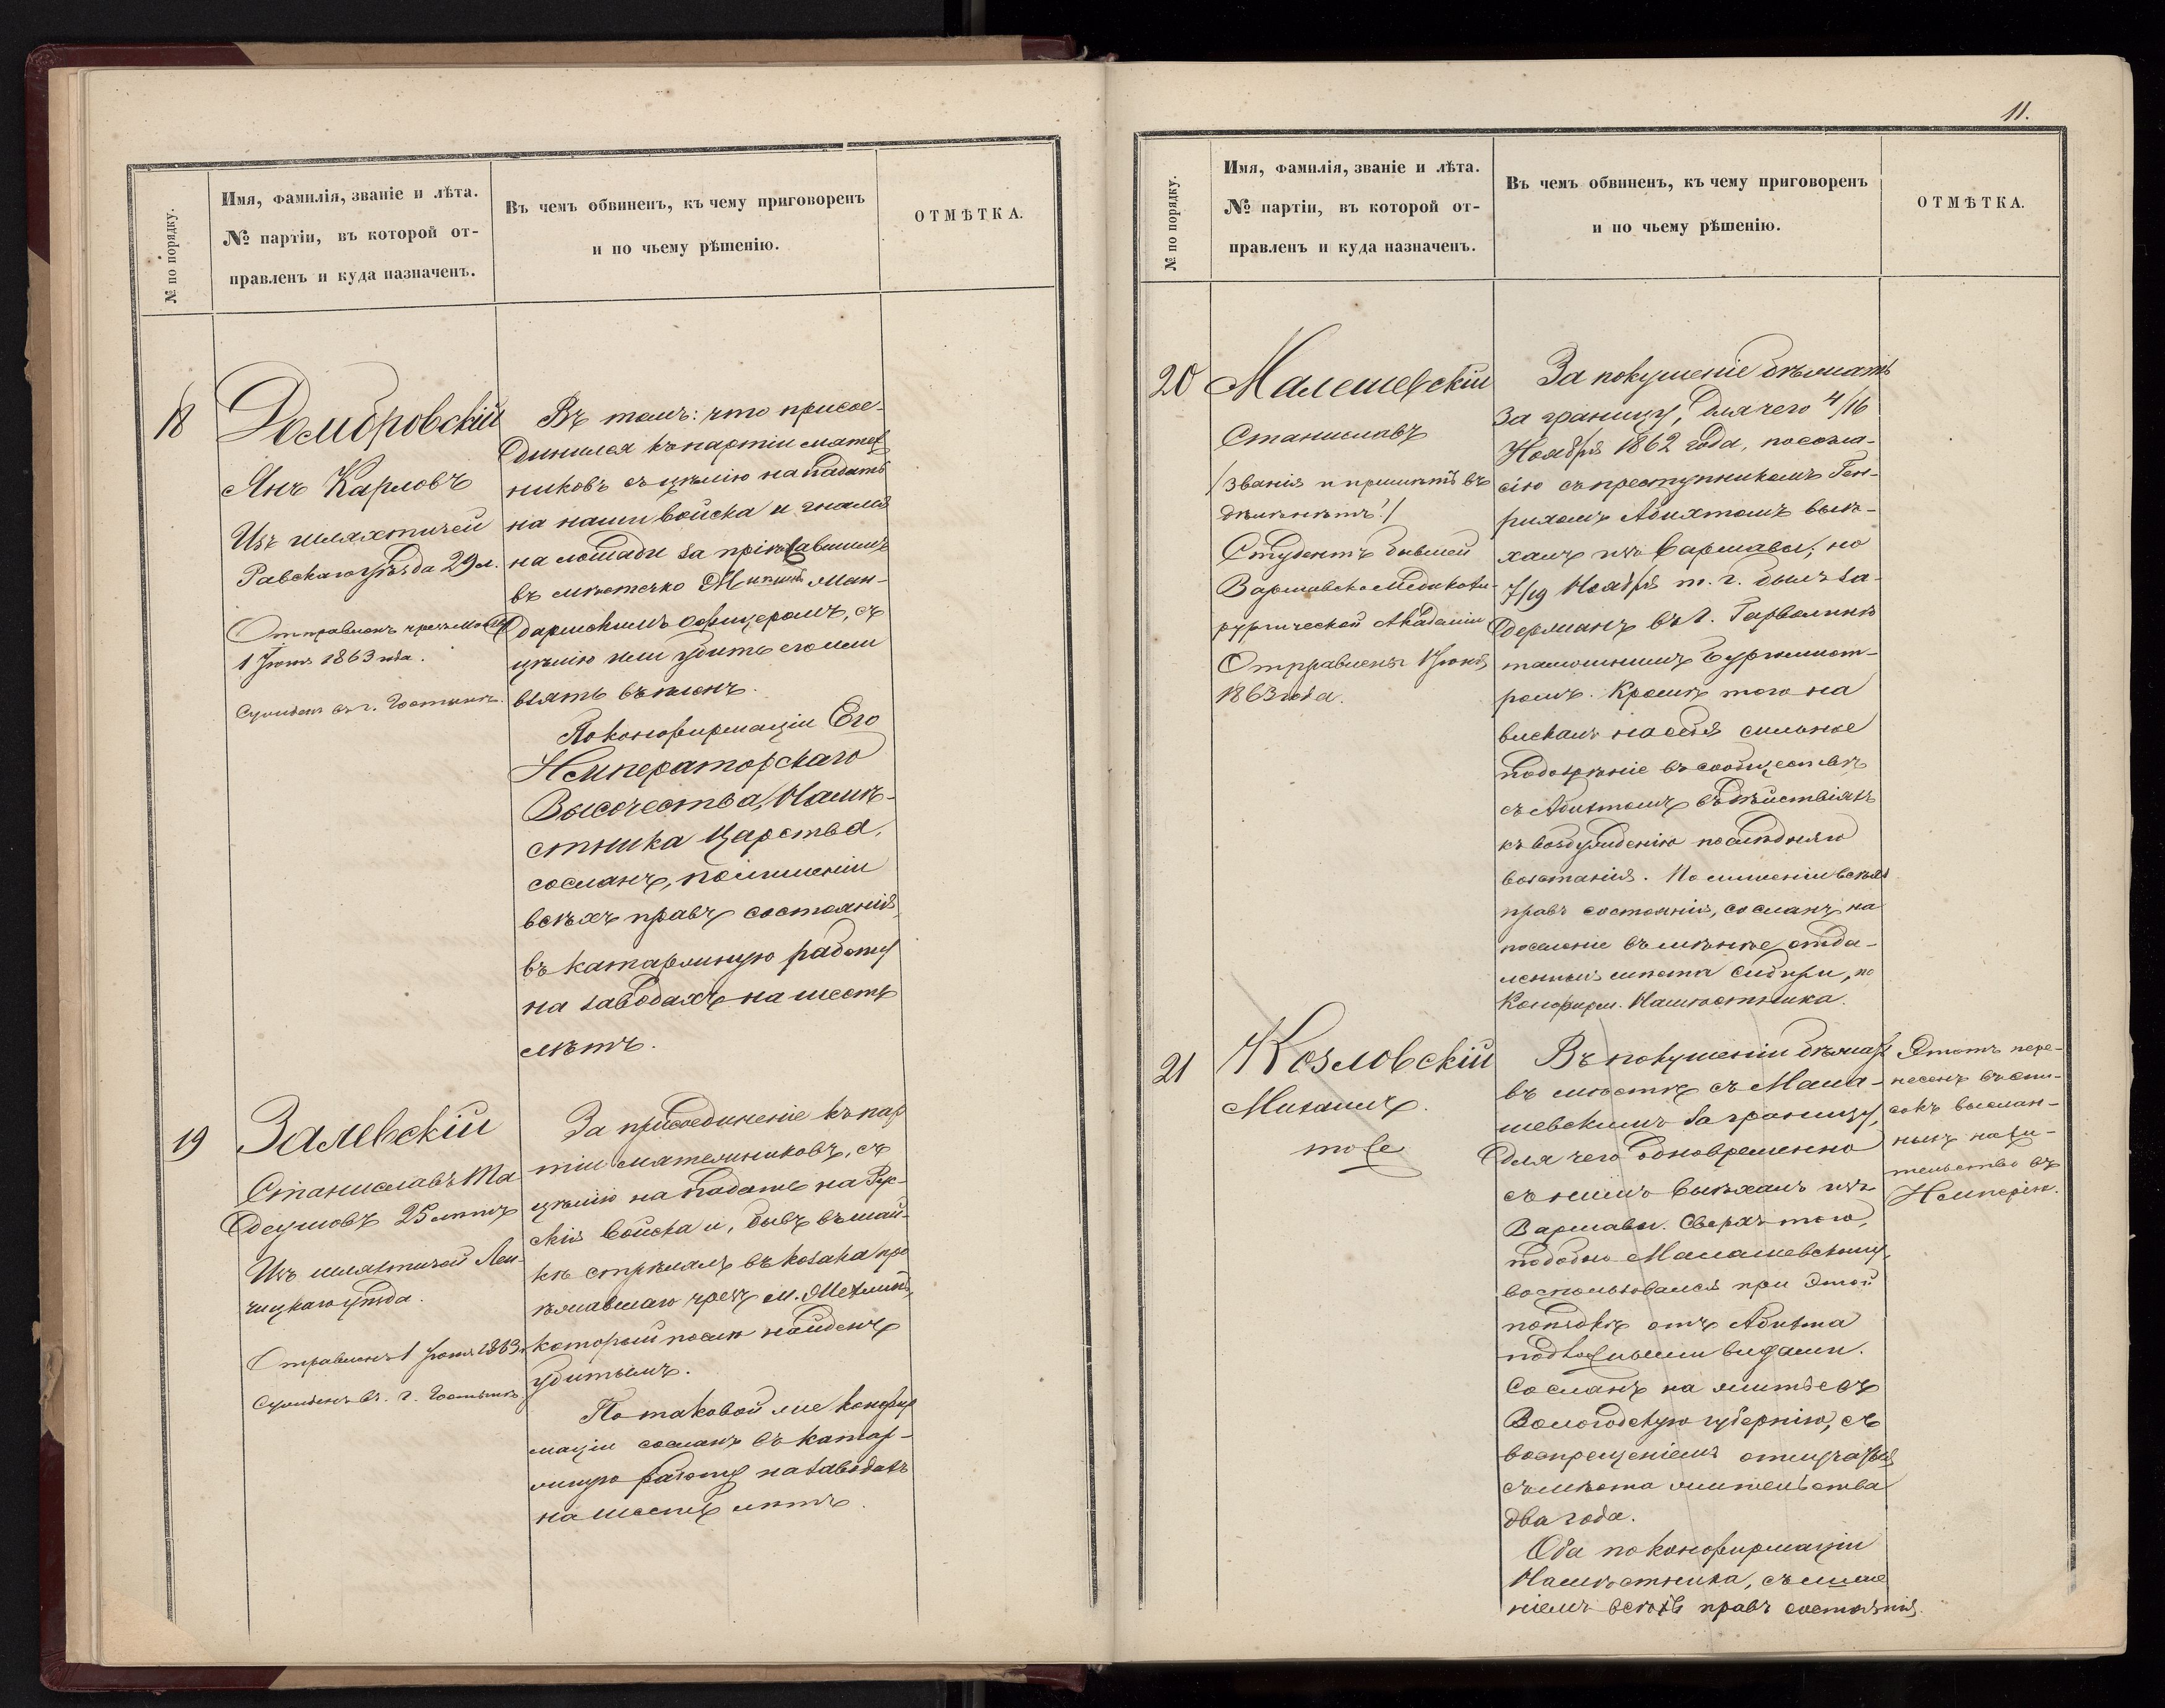 № по порядку.
Имя, фамилія, званіе и лѣта.
№ партіи, въ которой от-
правленъ и куда назначенъ.
Въ чемъ обвиненъ, къ чему приговоренъ
и по чьему рѣшенію.
ОТМѢТКА.
18
Домбровскій
Янъ Карловъ
Изъ шляхтичей
Равскаго уѣзда 29 л.
Отправленъ чрезъ
1 Іюня 1863 года.
Сужденъ въ г. Гостынѣ.
Въ томъ: что присое-
динился къ партіи мятеж
никовъ съ цѣлію нападать
на наши войска и гнался
на лошади за пріѣзжавшимъ
въ мѣстечко жан-
дармскимъ офицеромъ, съ
цѣлію или убить его или
взять въ плѣнъ.
По конфирмаціи Его
Императорскаго
Высочества, Намѣ-
стника Царства,
сосланъ, по лишеніи
всѣхъ правъ состоянія,
въ каторжную работу
на заводахъ на шесть
лѣтъ.
19
Залевскій
Станиславъ Та
деушовъ 25 лѣтъ
Изъ шляхтичей Лен-
чицкаго уѣзда.
Отправленъ 1 Іюня 1863 г.
Сужденъ въ г. Гостынѣ.
За присоединеніе къ пар
тіи мятежниковъ, съ
цѣлію нападать на Рус-
скія войска и, бывъ въ шай-
кѣ стрѣлялъ въ козака про
ѣзжавшаго чрезъ м.
который послѣ найденъ
убитымъ.
По таковой же конфир
маціи сосланъ въ катор-
жную работу на заводахъ
на шесть лѣтъ.
11.
№ по порядку.
Имя, фамилія, званіе и лѣта.
№ партіи, въ которой от-
правленъ и куда назначенъ.
Въ чемъ обвиненъ, къ чему приговоренъ
и по чьему рѣшенію.
ОТМѢТКА.
20
Малешевскій
Станиславъ
/званія и примѣтъ въ
дѣлѣ нѣтъ!/
Студентъ бывшей
Варшавско Медикохи-
рургической Академіи
Отправленъ 1 Іюня
1863 года.
За покушеніе бѣжать
за границу, для чего 4/16
Ноября 1862 года, по согла-
сію съ преступникомъ Ген-
рихомъ Абихтомъ выѣ-
халъ изъ Варшавы, но
7/19 Ноября т. г. былъ за-
держанъ въ г. Гарволинѣ
тамошнимъ Бургомист-
ромъ. Кромѣ того на
влекалъ на себя сильное
подозрѣніе въ сообществѣ
съ Абихтомъ въ дѣйствіяхъ
къ возбужденію послѣдняго
возстанія. По лишеніи всѣхъ
правъ состоянія, сосланъ на
поселеніе въ менѣе отда-
ленныя мѣста Сибири, по
Конфирм. Намѣстника.
21
Козловскій
Михаилъ.
тоже
Въ покушеніи бѣжать
въ мѣстѣ съ Мала-
шевскимъ за границу,
для чего одновременно
съ нимъ выѣхалъ изъ
Варшавы. Сверхъ того,
подобно Малашевскому,
воспользовался при этой
поѣздкѣ отъ Абихта
подложными видами.
Сосланъ на житье въ
Вологодскую губернію, съ
воспрещеніемъ отлучаться
съ мѣста жительства
два года.
Оба по конфирмаціи
Намѣстника, съ лише
ніемъ всѣхъ правъ состоянія.
Этотъ пере-
несенъ въ спи-
сокъ выслан-
ныхъ на жи-
тельство въ
Имперію.